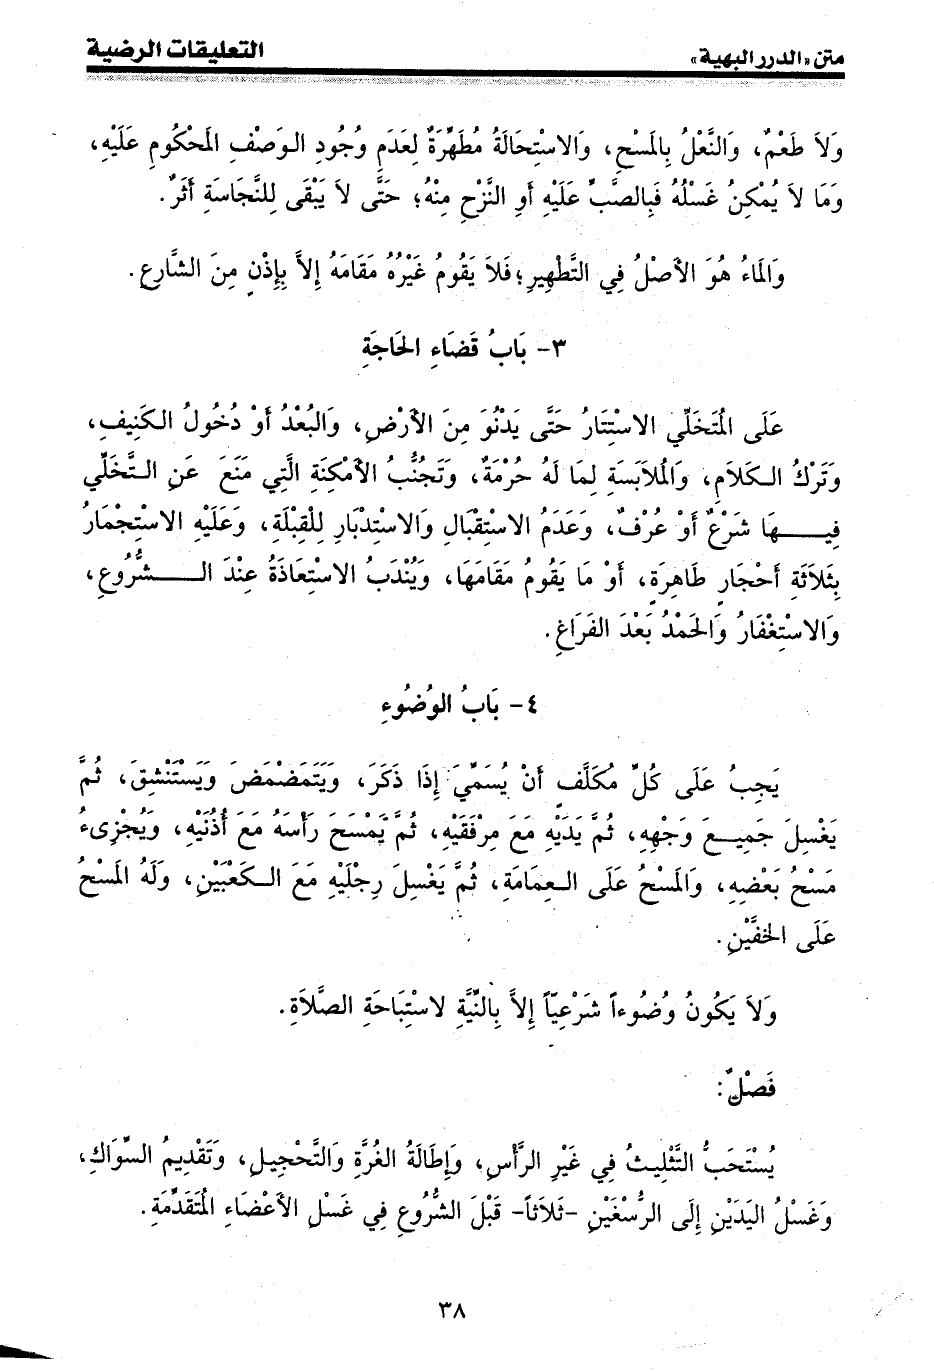 متن «الدرر البهية» التعليقات الرضية
وَلاَ طَعْمٌ، وَالنَّعْلُ بِالمَسْحِ، وَالاسْتِحَالَةُ مُطَهِّرَةٌ لِعَدَمِ وُجُودِ الوَصْفِ المَحْكُومِ عَلَيْهِ،
وَمَا لاَ يُمْكِنُ غَسْلُهُ فَبِالصَّبِّ عَلَيْهِ أَوِ النَّزْحِ مِنْهُ؛ حَتَّى لاَ يَبْقَى لِلنَّجَاسَةِ أَثَرٌ.
وَالمَاءُ هُوَ الأَصْلُ فِي التَّطْهِيرِ؛ فَلاَ يَقُومُ غَيْرُهُ مَقَامَهُ إِلاَّ بِإِذْنٍ مِنَ الشَّارِعِ.
٣- بَابُ قَضَاءِ الحَاجَةِ
عَلَى المُتَخَلِّي الاسْتِتَارُ حَتَّى يَدْنُوَ مِنَ الأَرْضِ، وَالبُعْدُ أَوْ دُخُولُ الكَنِيفِ،
وَتَرْكُ الكَلاَمِ، وَالمُلاَبَسَةِ لِمَا لَهُ حُرْمَةٌ، وَتَجَنُّبُ الأَمْكِنَةِ الَّتِي مَنَعَ عَنِ التَّخَلِّي
فِيـهَا شَرْعٌ أَوْ عُرْفٌ، وَعَدَمُ الاسْتِقْبَالِ وَالاسْتِدْبَارِ لِلْقِبْلَةِ، وَعَلَيْهِ الاسْتِجْمَارُ
بِثَلاَثَةِ أَحْجَارٍ طَاهِرَةٍ، أَوْ مَا يَقُومُ مَقَامَهَا، وَيُنْدَبُ الاسْتِعَاذَةُ عِنْدَ الـشُّرُوعِ،
وَالاسْتِغْفَارُ وَالحَمْدُ بَعْدَ الفَرَاغِ.
٤- بَابُ الوُضُوءِ
يَجِبُ عَلَى كُلِّ مُكَلَّفٍ أَنْ يُسَمِّيَ إِذَا ذَكَرَ، وَيَتَمَضْمَضَ وَيَسْتَنْشِقَ، ثُمَّ
يَغْسِلَ جَمِيـعَ وَجْهِهِ، ثُمَّ يَدَيْهِ مَعَ مِرْفَقَيْهِ، ثُمَّ يَمْسَحَ رَأْسَهُ مَعَ أُذُنَيْهِ، وَيُجْزِىءُ
مَسْحُ بَعْضِهِ، وَالمَسْحُ عَلَى العِمَامَةِ، ثُمَّ يَغْسِلَ رِجْلَيْهِ مَعَ الكَعْبَيْنِ، وَلَهُ المَسْحُ
عَلَى الخُفَّيْنِ.
وَلاَ يَكُونُ وُضُوءاً شَرْعِيّاً إِلاَّ بِالنِّيَّةِ لاسْتِبَاحَةِ الصَّلاَةِ.
فَصْلٌ:
يُسْتَحَبُّ التَّثْلِيثُ فِي غَيْرِ الرَّأْسِ، وَإِطَالَةُ الغُرَّةِ وَالتَّحْجِيلِ، وَتَقْدِيمُ السِّوَاكِ،
وَغَسْلُ اليَدَيْنِ إِلَى الرُّسْغَيْنِ -ثَلاَثاً- قَبْلَ الشُّرُوعِ فِي غَسْلِ الأَعْضَاءِ المُتَقَدِّمَةِ.
٣٨